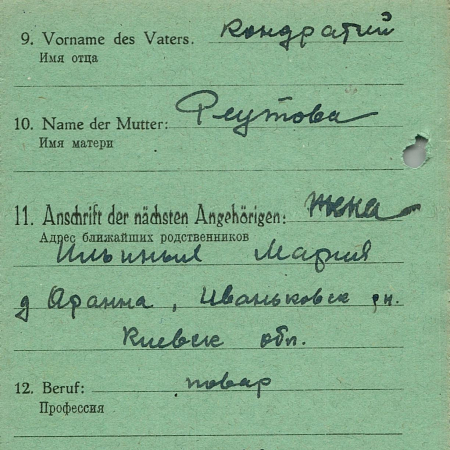 9. Vorname des Vaters. Кондратий
Имя отца
10. Name der Mutter: Реутова
Имя матери
11. Anschrift der nächsten Angehörigen: жена
Адрес ближайших родственников
Мария
д Аранна, Иваньковск рн.
Киевск обл.
12. Beruf: повар
Профессия